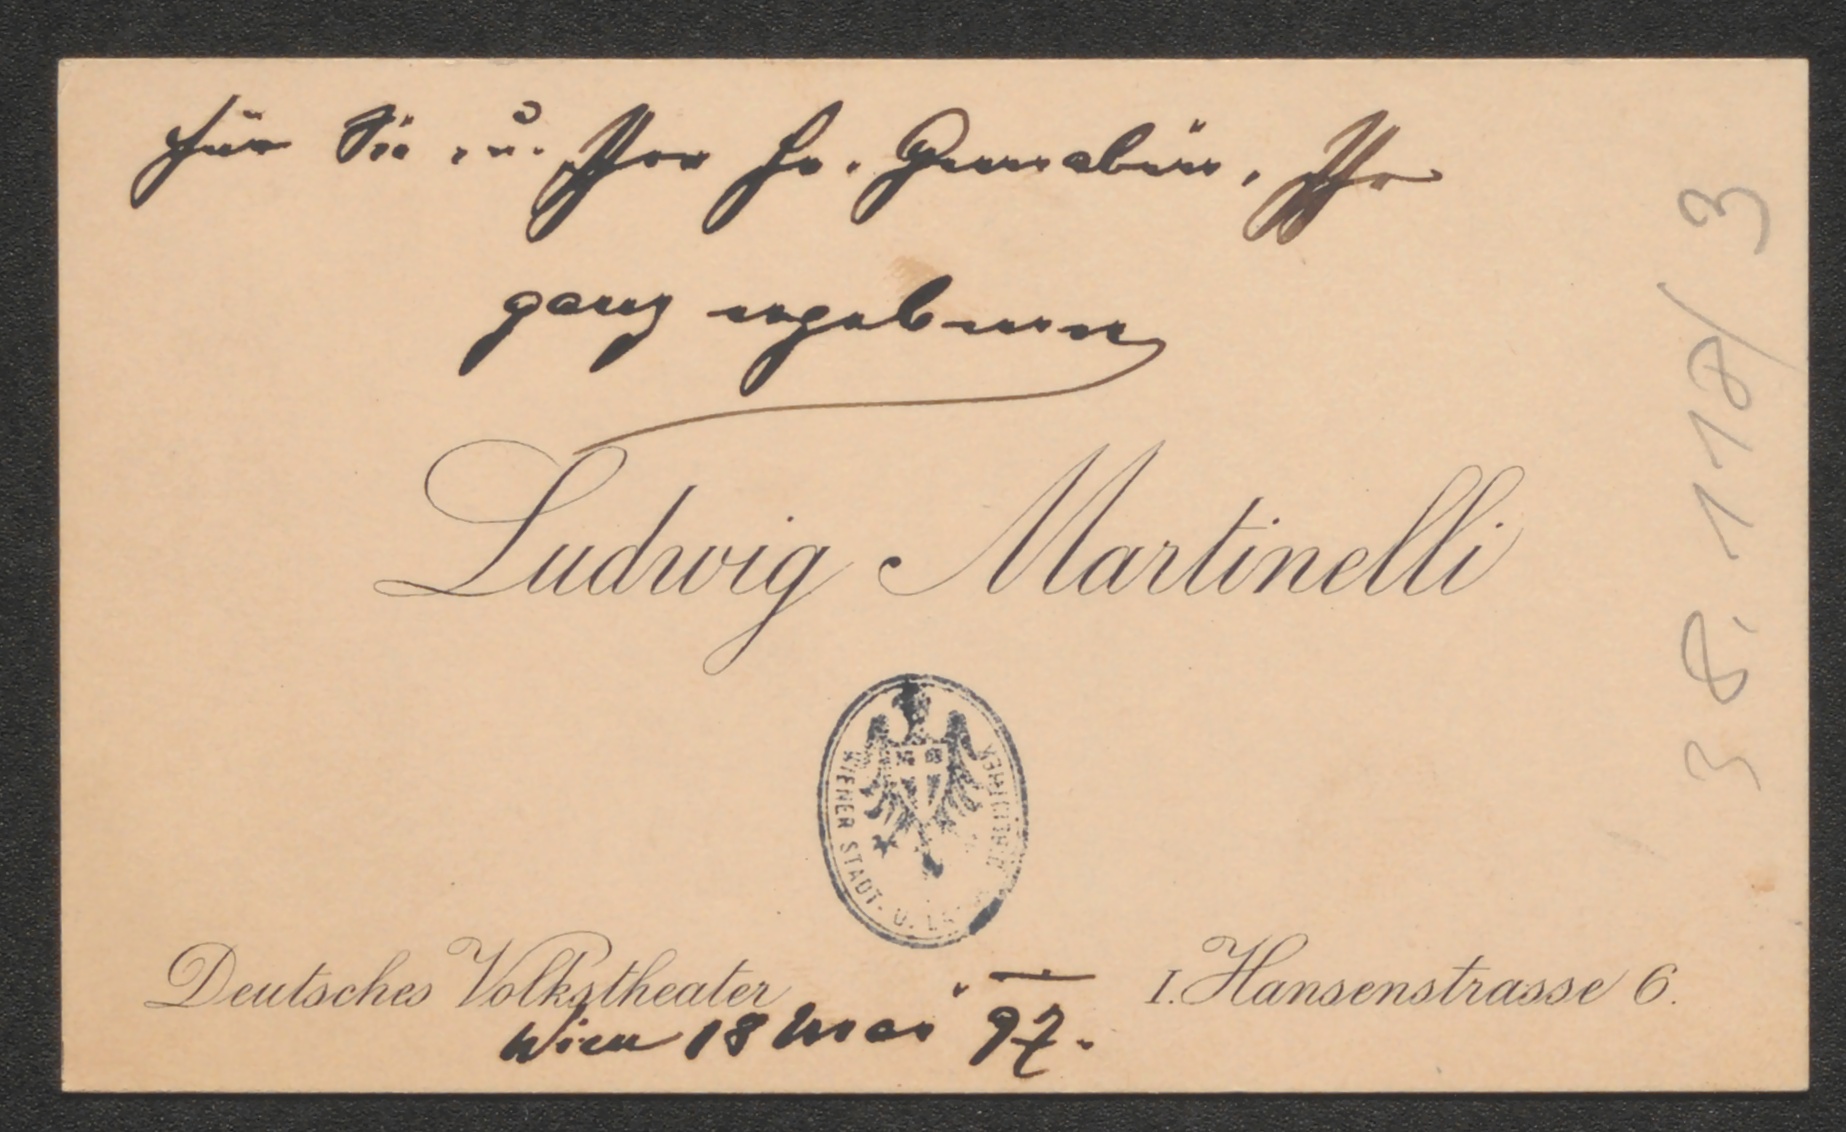 für Sie u. Ihre Fr. Gemahlin, Ihr
ganz ergebener
Ludwig Martinelli
WIENER STADT- U.
Deutsches Volkstheater
I. Hansenstrasse 6.
Wien 18 Mai 97.
38.118/3